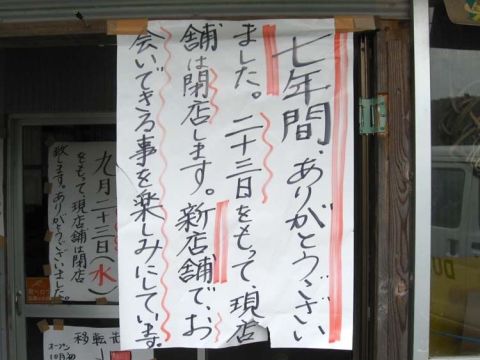 七年間・ありがとうござい
ました。二十三日をもって、現店
舗は閉店します。新店舗で、お
会いできる事を楽しみにしています。
九月二十三日(水)
をもって、現店舗は閉店
致します。ありがとうございました。
移転先
オープン
10月初